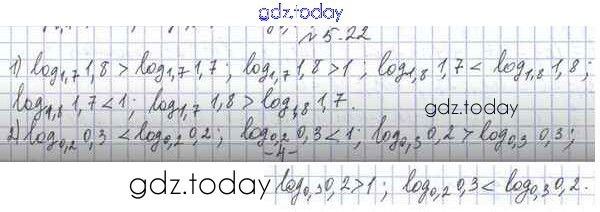 gdz.today
№ 5.22
1) log₁,₇ 1,8 > log₁,₇ 1,7 ; log₁,₇ 1,8 > 1 ; log₁,₈ 1,7 < log₁,₈ 1,8 ;
log₁,₈ 1,7 < 1 ; log₁,₇ 1,8 > log₁,₈ 1,7 .
gdz.today
2) log₀,₂ 0,3 < log₀,₂ 0,2 ; log₀,₂ 0,3 < 1 ; log₀,₃ 0,2 > log₀,₃ 0,3 ;
-4-
gdz.today
log₀,₃ 0,2 > 1 ; log₀,₂ 0,3 < log₀,₃ 0,2 .